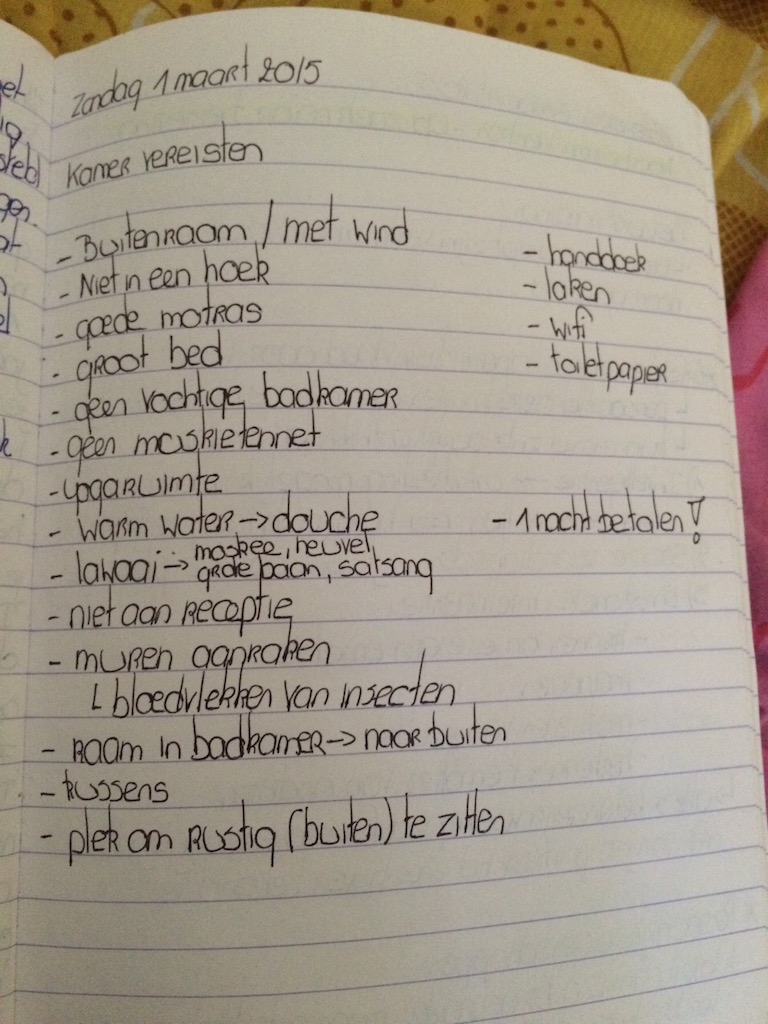 Zondag 1 maart 2015
Kamer vereisten
- Buitenraam / met wind
- Niet in een hoek
- goede matras
- groot bed
- geen vochtige badkamer
- geen muskietennet
- yogaruimte
- warm water → douche
- lawaai → moskee, heuvel,
grote baan, satsang
- niet aan receptie
- muren aanraken
L bloedvlekken van insecten
- raam in badkamer → naar buiten
- kussens
- plek om rustig (buiten) te zitten
- handdoek
- laken
- wifi
- toiletpapier
- 1 nacht betalen!